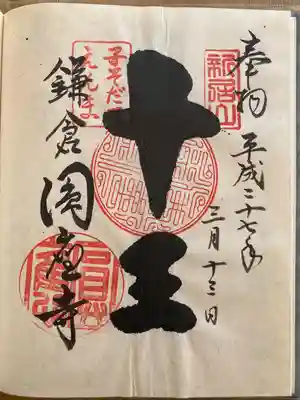 奉拝
平成二十七年
三月十三日
新居山
十王
子そだて
えんま
鎌倉圓應寺